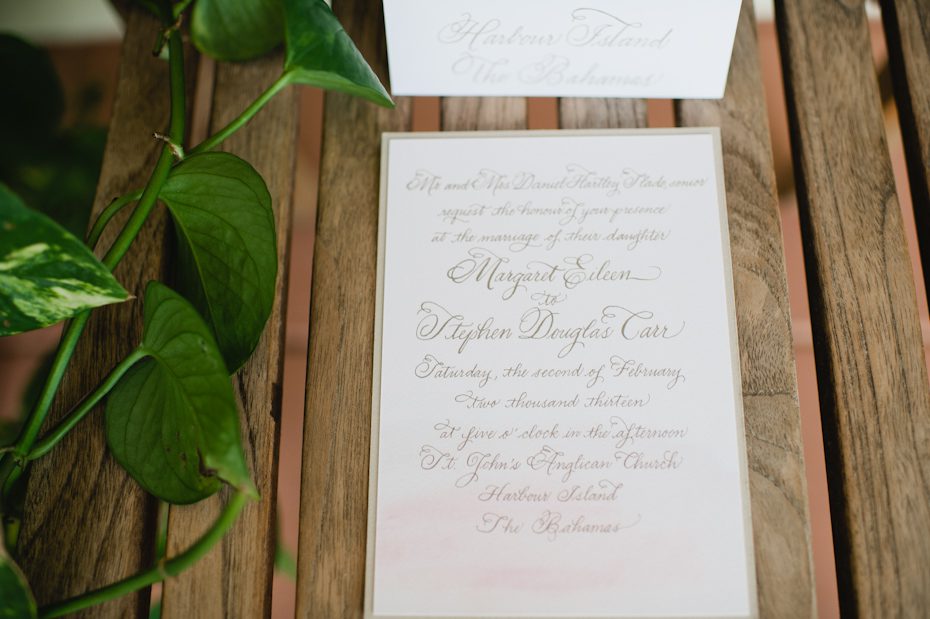 Harbour Island
The Bahamas
Mr and Mrs Daniel Hartley Slade, senior
request the honour of your presence
at the marriage of their daughter
Margaret Eileen
to
Stephen Douglas Carr
Saturday, the second of February
two thousand thirteen
at five o'clock in the afternoon
St. John's Anglican Church
Harbour Island
The Bahamas